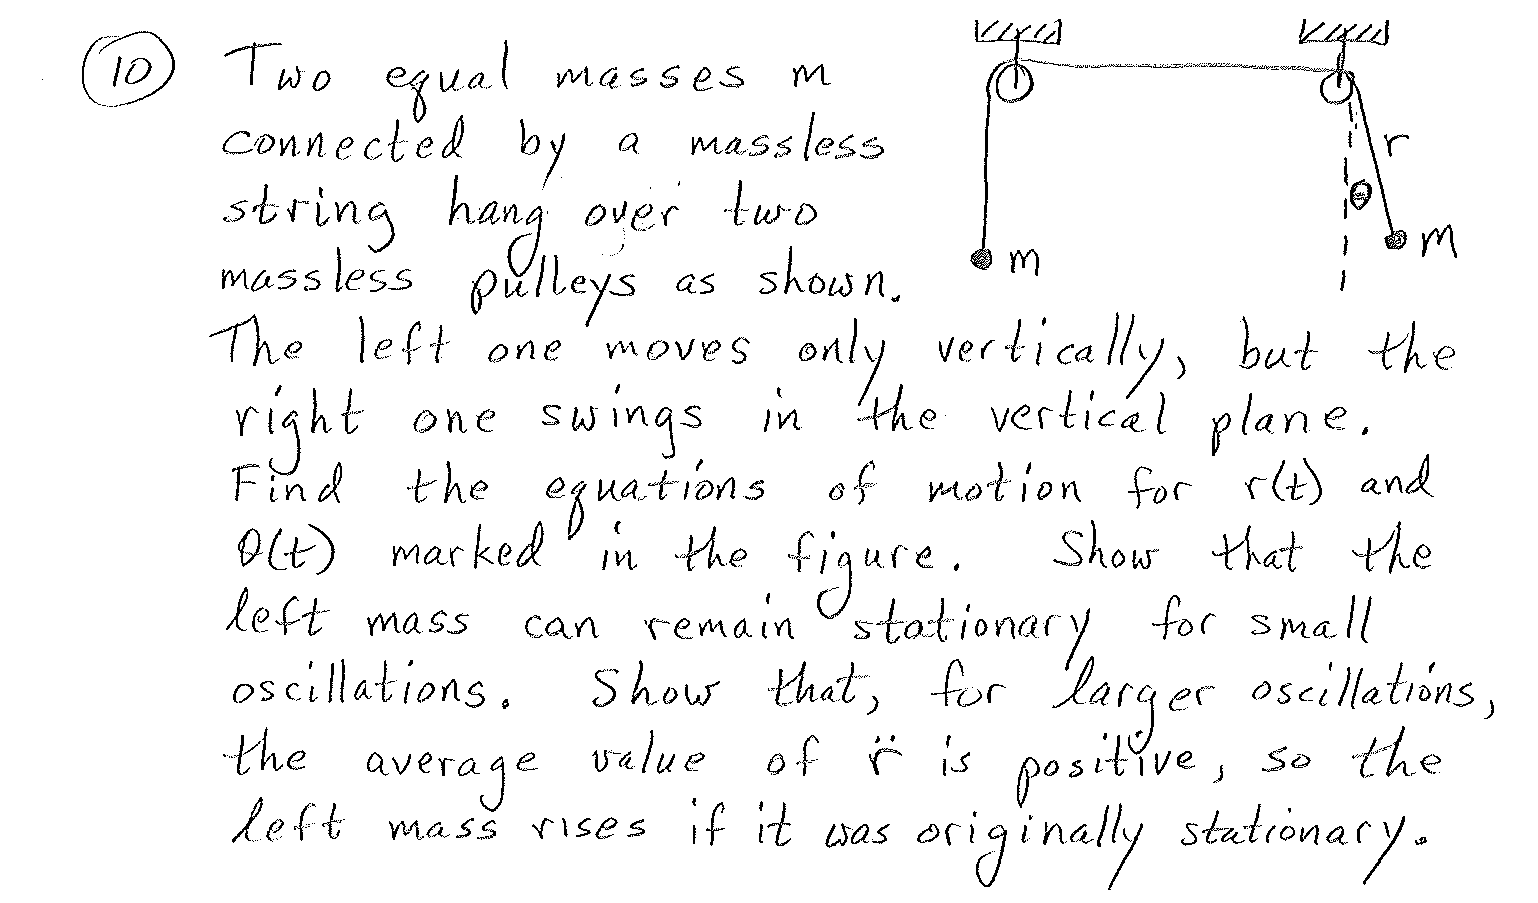 10 Two equal masses m
connected by a massless
string hang over two
massless pulleys as shown.
r
θ
m
m
The left one moves only vertically, but the
right one swings in the vertical plane.
Find the equations of motion for r(t) and
θ(t) marked in the figure. Show that the
left mass can remain stationary for small
oscillations. Show that, for larger oscillations,
the average value of r̈ is positive, so the
left mass rises if it was originally stationary.